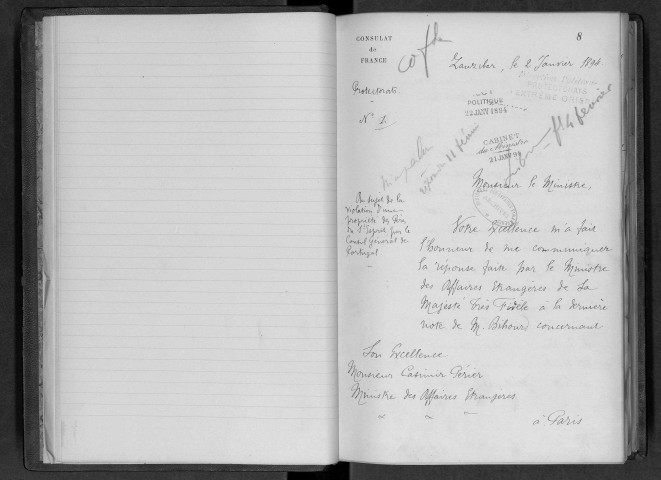 8
CONSULAT
de
FRANCE
Zanzibar, le 2 Janvier 1894
Protectorats.
POLITIQUE
22 JANV 1894
N° 1.
CABINET
21 JANV 94
Monsieur le Ministre,
Au sujet de la
violation d'une
propriété des Pères
du St Esprit par le
Consul Général de
Portugal
Votre Excellence m'a fait
l'honneur de me communiquer
la réponse faite par le Ministre
des Affaires Etrangères de Sa
Majesté très Fidèle à la dernière
note de M. Bihourd concernant
Son Excellence
Monsieur Casimir Périer
Ministre des Affaires Etrangères
à Paris